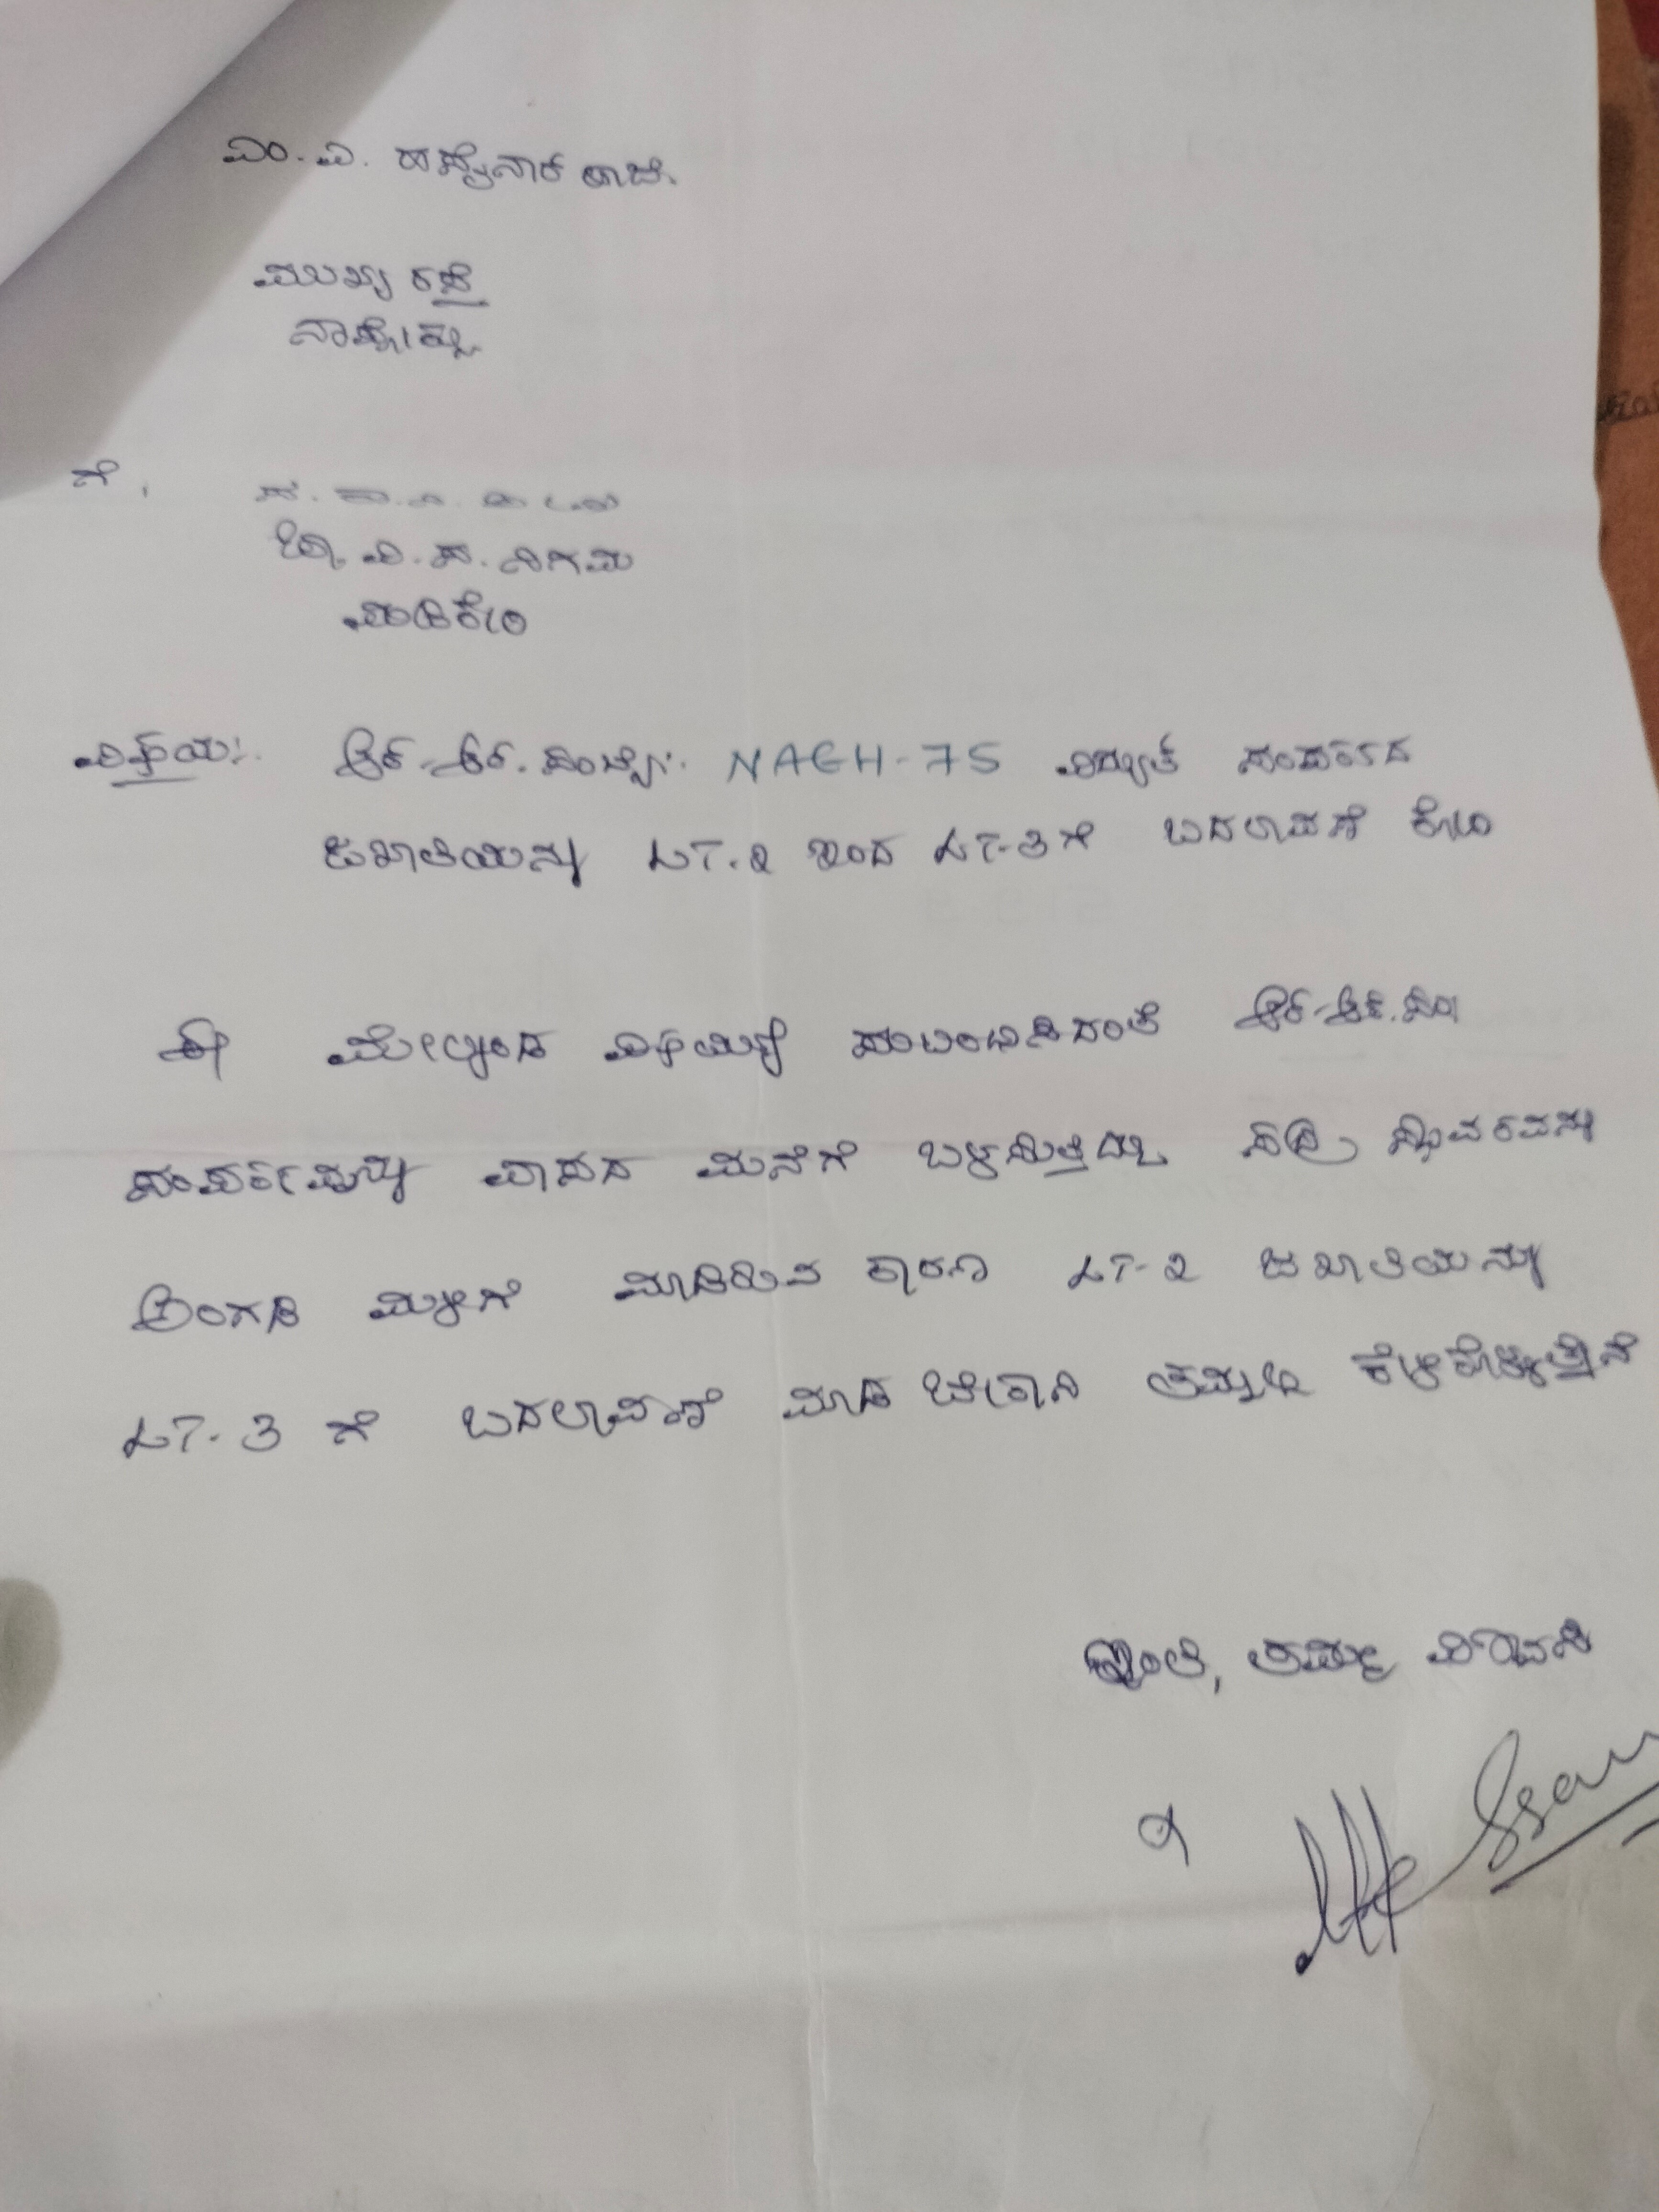 ಎಂ. ಎ. ಹಸ್ಸೈನಾರ್ ಹಾಜಿ.
ಮುಖ್ಯ ರಸ್ತೆ
ನಾಪೋಕ್ಲು
ಗೆ,
ಚಾ. ವಿ. ಸ. ನಿಗಮ
ಮಡಿಕೇರಿ
ವಿಷಯ:. ಆರ್.ಆರ್.ಸಂಖ್ಯೆ: NAGH-75 ವಿದ್ಯುತ್ ಸಂಪರ್ಕದ
ಜಖಾತಿಯನ್ನು LT.2 ಇಂದ LT-3ಗೆ ಬದಲಾವಣೆ ಕೋರಿ
ಈ ಮೇಲ್ಕಂಡ ವಿಷಯಕ್ಕೆ ಸಂಬಂಧಿಸಿದಂತೆ ಆರ್.ಆರ್.ಸಂ
ಸಂಪರ್ಕವನ್ನು ವಾಸದ ಮನೆಗೆ ಬಳಸುತ್ತಿದ್ದು ಸದ್ರಿ ಸ್ಥಾವರವನ್ನು
ಅಂಗಡಿ ಮಳಿಗೆ ಮಾಡಿರುವ ಕಾರಣ LT-2 ಜಖಾತಿಯನ್ನು
LT-3 ಗೆ ಬದಲಾವಣೆ ಮಾಡ ಬೇಕಾಗಿ ತಮ್ಮಲ್ಲಿ ಕೇಳಿಕೊಳ್ಳುತ್ತೇನೆ
ಇಂತಿ, ತಮ್ಮ ವಿಶ್ವಾಸಿ